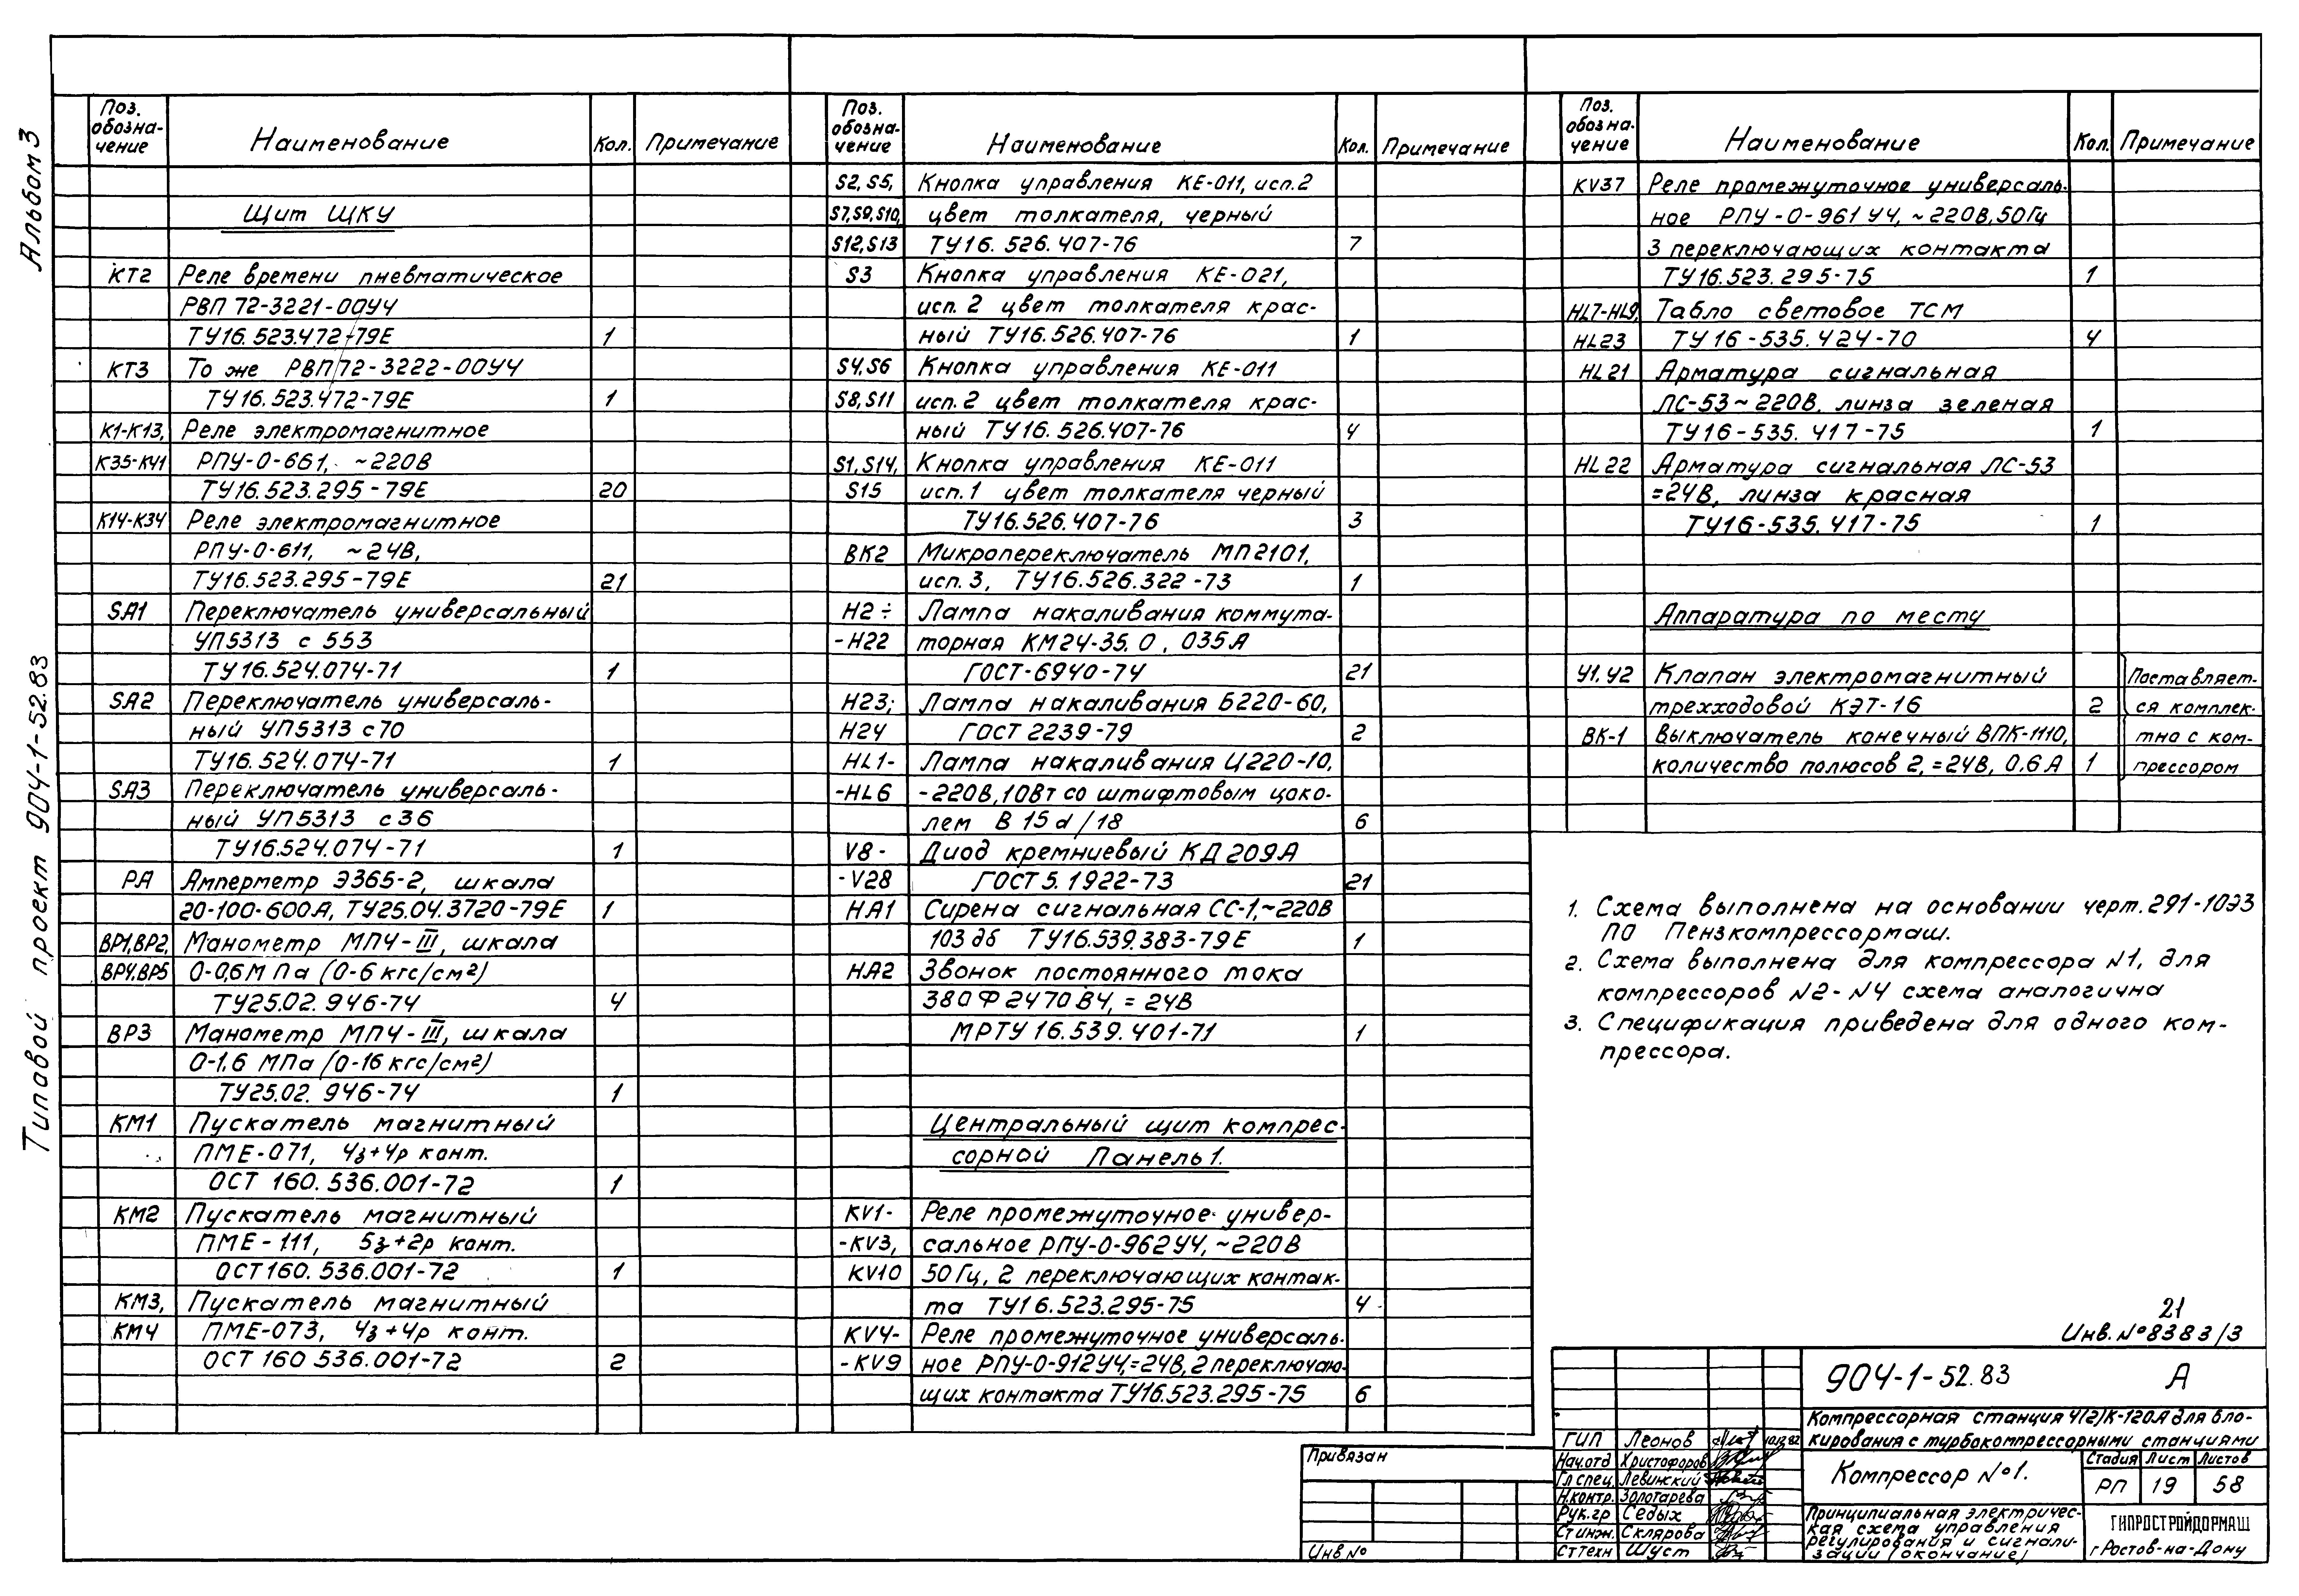 Альбом 3
Типовой проект 904-1-52.83
Поз. обозна-чение Наименование Кол. Примечание
Щит ЩКУ
КТ2 Реле времени пневматическое
РВП 72-3221-00У4
ТУ16.523.472-79Е 1
КТ3 То же РВП 72-3222-00У4
ТУ16.523.472-79Е 1
К1-К13, Реле электромагнитное
К35-К41 РПУ-0-661, ~220В
ТУ16.523.295-79Е 20
К14-К34 Реле электромагнитное
РПУ-0-611, ~24В,
ТУ16.523.295-79Е 21
SA1 Переключатель универсальный
УП5313 с 553
ТУ16.524.074-71 1
SA2 Переключатель универсаль-
ный УП5313 с70
ТУ16.524.074-71 1
SA3 Переключатель универсаль-
ный УП5313 с36
ТУ16.524.074-71 1
РА Амперметр Э365-2, шкала
20-100-600А, ТУ25.04.3720-79Е 1
ВР1,ВР2, Манометр МП4-III, шкала
ВР4,ВР5 0-0,6М Па (0-6 кгс/см²)
ТУ25.02.946-74 4
ВР3 Манометр МП4-III, шкала
0-1,6 МПа (0-16 кгс/см²)
ТУ25.02.946-74 1
КМ1 Пускатель магнитный
ПМЕ-071, 4з+4р конт.
ОСТ 160.536.001-72 1
КМ2 Пускатель магнитный
ПМЕ-111, 5з+2р конт.
ОСТ160.536.001-72 1
КМ3, Пускатель магнитный
КМ4 ПМЕ-073, 4з+4р конт.
ОСТ 160 536.001-72 2
Поз. обозна-чение Наименование Кол. Примечание
S2, S5, Кнопка управления КЕ-011, исп.2
S7,S9,S10, цвет толкателя, черный
S12,S13 ТУ16.526.407-76 7
S3 Кнопка управления КЕ-021,
исп. 2 цвет толкателя крас-
ный ТУ16.526.407-76 1
S4,S6 Кнопка управления КЕ-011
S8,S11 исп.2 цвет толкателя крас-
ный ТУ16.526.407-76 4
S1,S14, Кнопка управления КЕ-011
S15 исп.1 цвет толкателя черный
ТУ16.526.407-76 3
ВК2 Микропереключатель МП2101,
исп.3, ТУ16.526.322-73 1
Н2÷ Лампа накаливания коммута-
-Н22 торная КМ24-35.0,035А
ГОСТ-6940-74 21
Н23; Лампа накаливания Б220-60,
Н24 ГОСТ 2239-79 2
HL1- Лампа накаливания Ц220-10,
-HL6 -220В,10Вт со штифтовым цоко-
лем В 15 d/18 6
V8- Диод кремниевый КД209А
-V28 ГОСТ5.1922-73 21
НА1 Сирена сигнальная СС-1,~220В
103 дб ТУ16.539.383-79Е 1
НА2 Звонок постоянного тока
380Ф2470В4, =24В
МРТУ 16.539.401-71 1
Центральный щит компрес-
сорной Панель1.
KV1- Реле промежуточное универ-
-KV3, сальное РПУ-0-962У4, ~220В
KV10 50 Гц, 2 переключающих контак-
та ТУ16.523.295-75 4
KV4- Реле промежуточное универсаль-
-KV9 ное РПУ-0-912У4,=24В,2 переключаю-
щих контакта ТУ16.523.295-75 6
Поз. обозна-чение Наименование Кол. Примечание
KV37 Реле промежуточное универсаль-
ное РПУ-0-961У4, ~220В,50Гц
3 переключающих контакта
ТУ16.523.295-75 1
HL7-HL9, Табло световое ТСМ
HL23 ТУ16-535.424-70 4
HL21 Арматура сигнальная
ЛС-53~220В. линза зеленая
ТУ16-535.417-75 1
HL22 Арматура сигнальная ЛС-53
=24В, линза красная
ТУ16-535.417-75 1
Аппаратура по месту
У1.У2 Клапан электромагнитный Поставляет-
трехходовой КЭТ-16 2 ся комплек-
ВК-1 Выключатель конечный ВПК-1110, тно с ком-
количество полюсов 2,=24В, 0.6А 1 прессором
1. Схема выполнена на основании черт.291-10Э3
ПО Пензкомпрессормаш.
2. Схема выполнена для компрессора N1, для
компрессоров N2-N4 схема аналогична
3. Спецификация приведена для одного ком-
прессора.
21
Инв.№8383/3
904-1-52.83 А
Компрессорная станция 4(2)К-120А для бло-
кирования с турбокомпрессорными станциями
Компрессор №1.
Стадия Лист Листов
РП 19 58
Принципиальная электричес-
кая схема управления
регулирования и сигнали-
зации (окончание)
ГИПРОСТРОЙДОРМАШ
г.Ростов-на-Дону
ГИП Леонов
Нач.отд Христофоров
Гл.спец. Левинский
Н.контр. Золотарева
Рук.гр Седых
Ст инж. Склярова
Ст техн Шуст
Привязан
Инв №